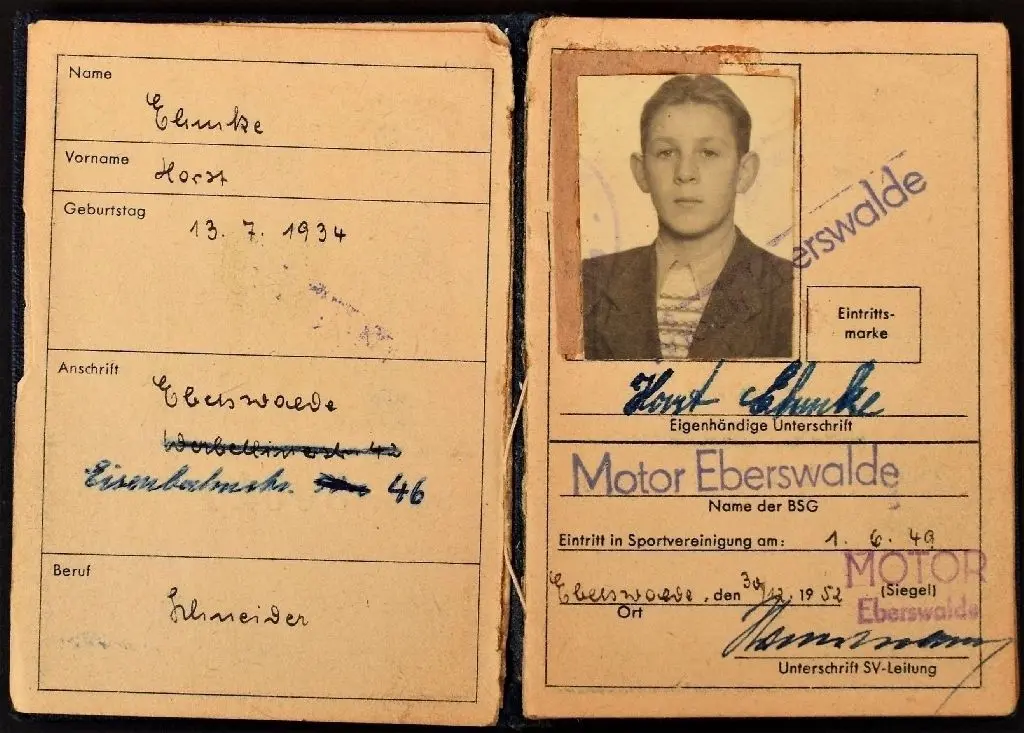 Name
Ehmke
Vorname
Horst
Geburtstag
13. 7. 1934
Anschrift
Eberswalde
Werbellinerstr. 42
Eisenbahnstr. 46
Beruf
Schneider
erswalde
Eintritts-
marke
Horst Ehmke
Eigenhändige Unterschrift
Motor Eberswalde
Name der BSG
Eintritt in Sportvereinigung am: 1. 6. 49
MOTOR
Eberswalde, den 30/12. 1952 (Siegel)
Ort
Eberswalde
Unterschrift SV-Leitung